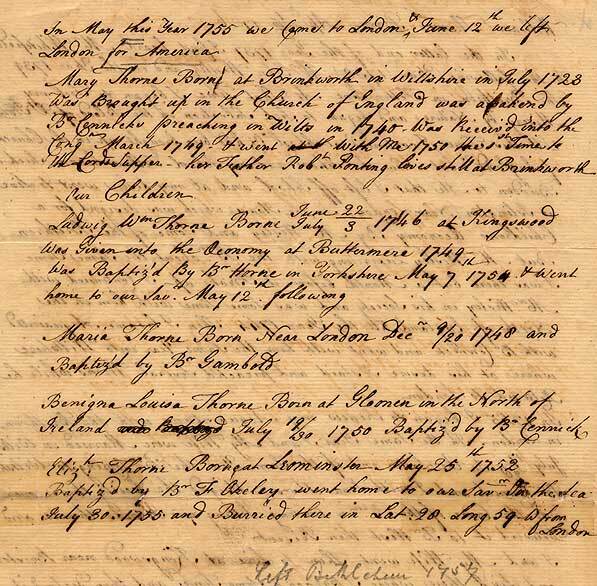 In May this Year 1755 we Come to London & June 12th we left
London for America
Mary Thorne Borne at Brinkworth in Wiltshire in July 1723
was Brought up in the Church of England was by
Br Cennicks preaching in Wilts in 1740. Was Receiv'd into the
Cong March 1749 & went with Me 1750 the 1st Time to
the Lords Supper her Father Robt Ponting lives still at Brinkworth
our Children
Ladwig Wm Thorne Borne June 22 / July 3 1746 at Kingswood
Was Given into the Oeconomy at Buttermere 1749
Was Baptiz'd By Br Horne in Yorkshire May 7th 1754 & went
home to our Savr May 12th following
Maria Thorne Born Near London Decr 9/20 1748 and
Baptiz'd by Br Gambold
Benigna Louisa Thorne Born at Gloonen in the North of
Ireland July 19/30 1750 Baptiz'd by Br Cennick
Elizth Thorne Born at Leominster May 25th 1752
Baptiz'd by Br Fr Okeley went home to our Savr On the Sea
July 30 1755 and Burried there in Lat 28 Long 59 W from
London
Left Bethlehem 1757